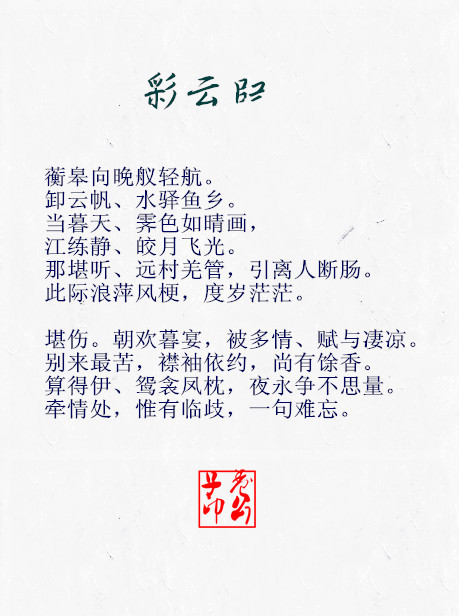 彩云归
蘅皋向晚舣轻航。
卸云帆、水驿鱼乡。
当暮天、霁色如晴画，
江练静、皎月飞光。
那堪听、远村羌管，引离人断肠。
此际浪萍风梗，度岁茫茫。
堪伤。朝欢暮宴，被多情、赋与凄凉。
别来最苦，襟袖依约，尚有馀香。
算得伊、鸳衾凤枕，夜永争不思量。
牵情处，惟有临歧，一句难忘。